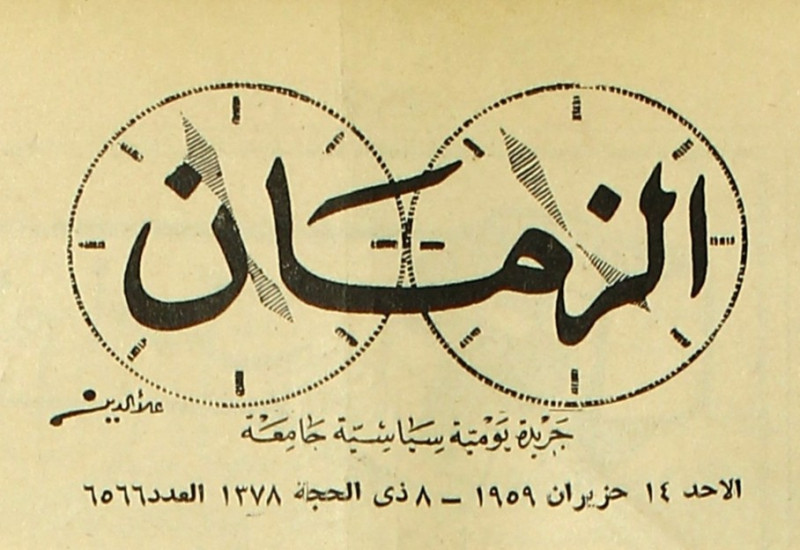 الزمان
علاء الدين
جريدة يومية سياسية جامعة
الاحد ١٤ حزيران ١٩٥٩ – ٨ ذى الحجة ١٣٧٨ العدد ٦٥٦٦